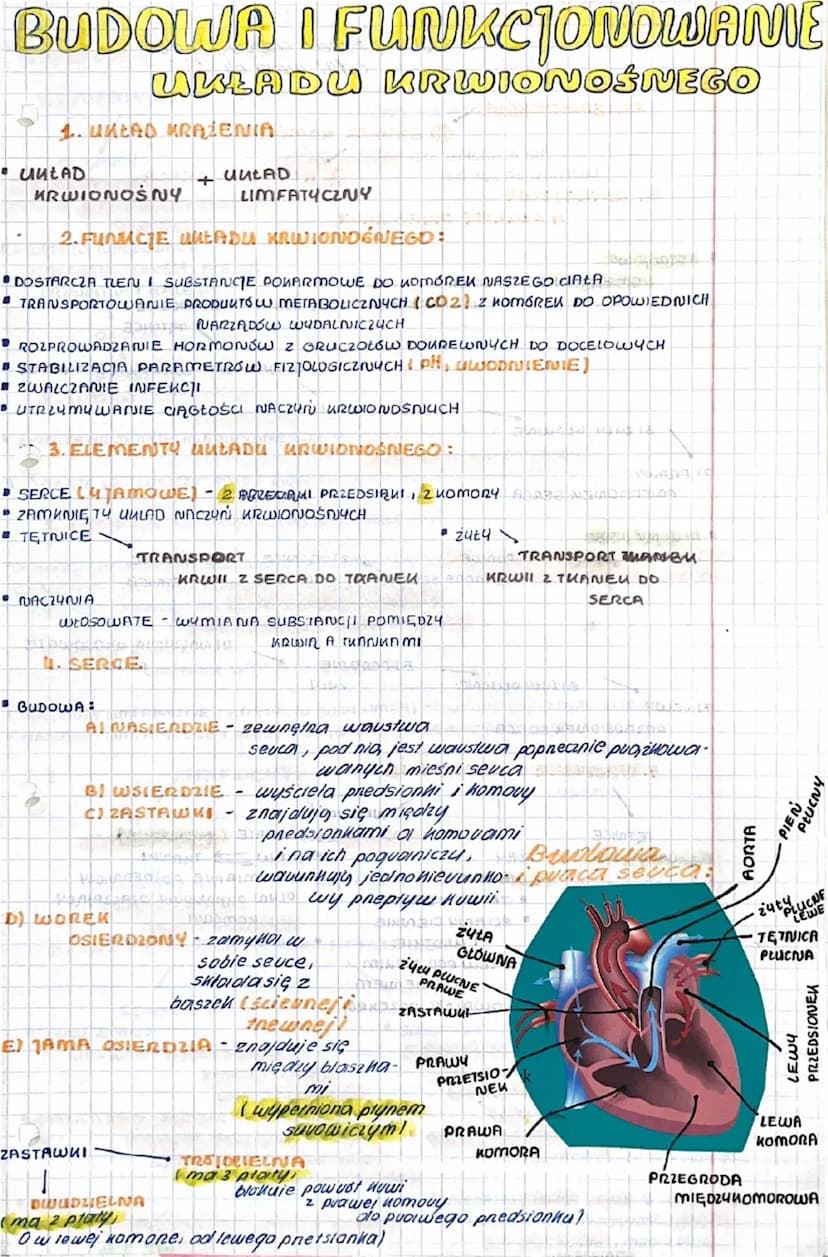 BUDOWA I FUNKCJONOWANIE
UKŁADU KRWIONOŚNEGO
1. UKŁAD KRĄŻENIA
• UKŁAD KRWIONOŚNY + UKŁAD LIMFATYCZNY
2. FUNKCJE UKŁADU KRWIONOŚNEGO:
• DOSTARCZA TLEN I SUBSTANCJE POKARMOWE DO KOMÓREK NASZEGO CIAŁA
• TRANSPORTOWANIE PRODUKTÓW METABOLICZNYCH (CO2) Z KOMÓREK DO OPOWIEDNICH
NARZĄDÓW WYDALNICZYCH
• ROZPROWADZANIE HORMONÓW Z GRUCZOŁÓW DOKREWNYCH DO DOCELOWYCH
• STABILIZACJA PARAMETRÓW FIZJOLOGICZNYCH (pH, UWODNIENIE)
• ZWALCZANIE INFEKCJI
• UTRZYMYWANIE CIĄGŁOŚCI NACZYŃ KRWIONOŚNYCH
3. ELEMENTY UKŁADU KRWIONOŚNEGO:
• SERCE (4 JAMOWE) - 2 PRZEDSIĄKI, 2 KOMORY
• ZAMKNIĘTY UKŁAD NACZYŃ KRWIONOŚNYCH
• TĘTNICE
TRANSPORT
KRWII Z SERCA DO TKANEK
• ŻYŁY
TRANSPORT
KRWII Z TKANEK DO
SERCA
• NACZYNIA
WŁOSOWATE - WYMIANA SUBSTANCJI POMIĘDZY
KRWIĄ A TKANKAMI
4. SERCE
• BUDOWA:
A) NASIERDZIE - zewnętrzna warstwa
serca, pod nią jest warstwa poprzecznie prążkowa-
wanych mieśni serca
B) WSIERDZIE - wyściela przedsionki i komory
C) ZASTAWKI - znajdują się między
przedsionkami a komorami
i na ich pograniczy,
warunkują jednokierunko-
wy przepływ krwii
D) WOREK
OSIERDZIONY - zamyka w
sobie serce,
składa się z
blaszek (ściennej i
trzewnej)
E) JAMA OSIERDZIA - znajduje się
między blaszka-
mi
(wypełniona płynem
surowiczym)
ZASTAWKI
TRÓJDZIELNA
(ma 3 płaty,
blokuje powrót krwi
z prawej komory
do prawego przedsionka)
DWUDZIELNA
(ma 2 płaty,
O w lewej komorze, od lewego przetsionka)
Budowa
i praca serca:
AORTA
PIEŃ
PŁUCNY
ŻYŁY PŁUCNE
LEWE
TĘTNICA
PŁUCNA
LEWY
PRZEDSIONEK
LEWA
KOMORA
PRZEGRODA
MIĘDZYKOMOROWA
ŻYŁA
GŁÓWNA
ŻYŁY PŁUCNE
PRAWE
ZASTAWKI
PRAWY
PRZETSIO-
NEK
k
PRAWA
KOMORA